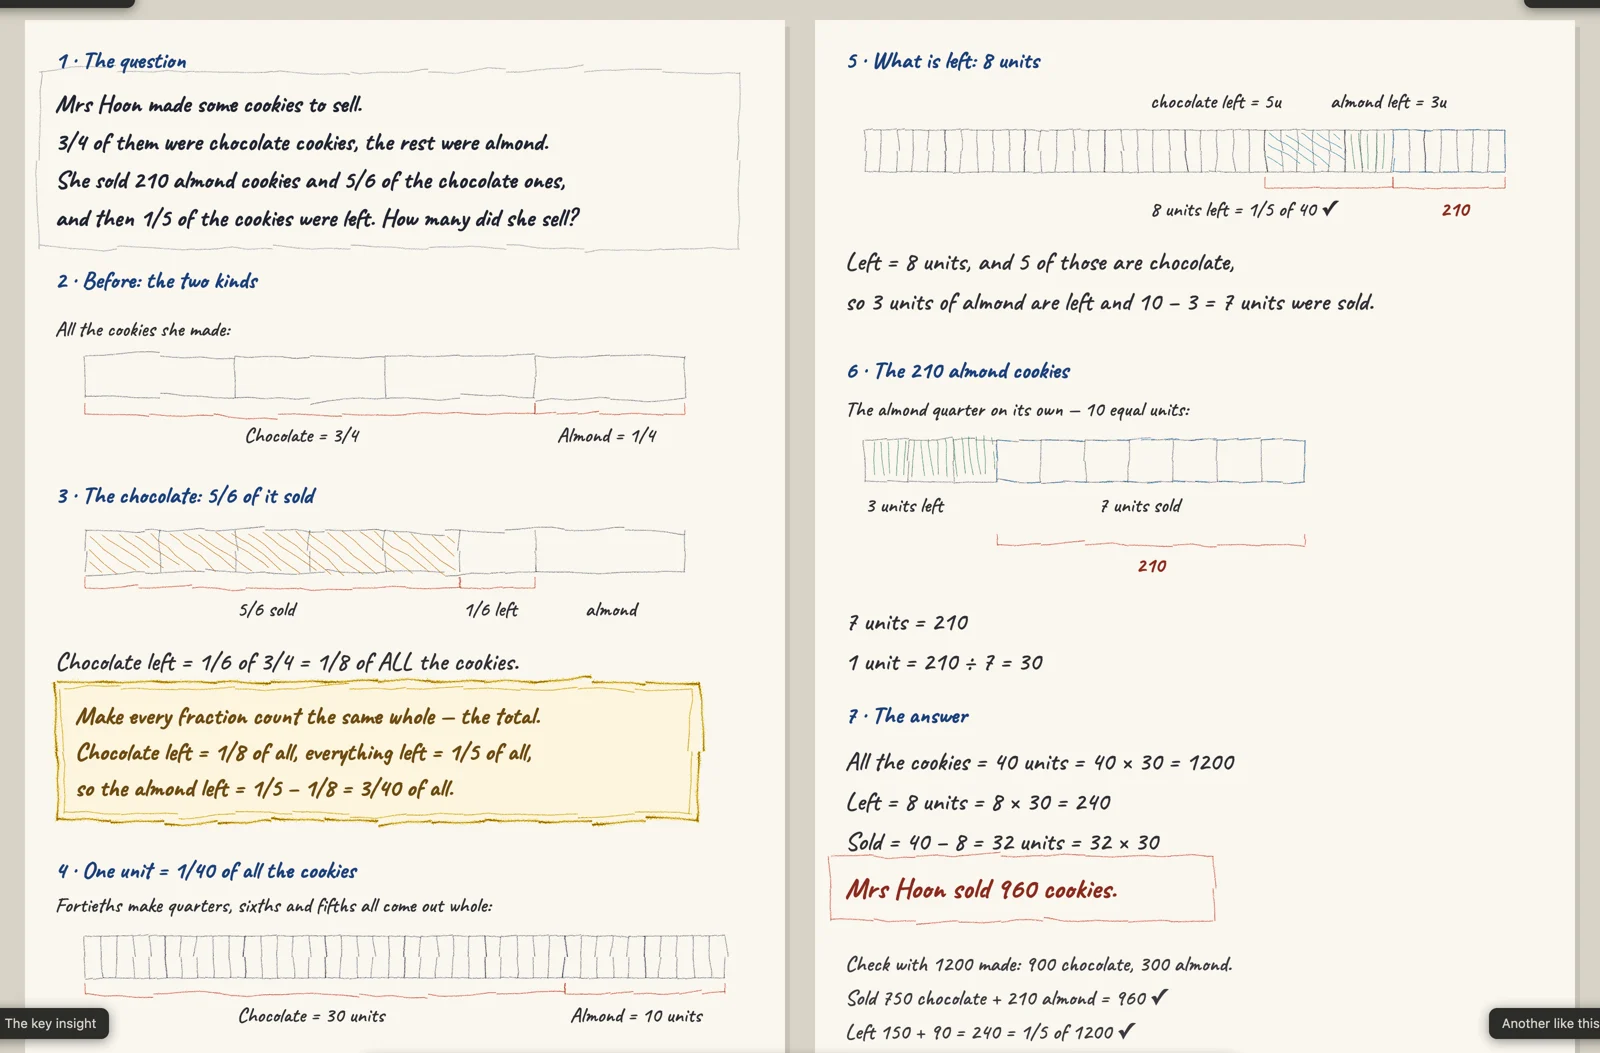 1 · The question
Mrs Hoon made some cookies to sell.
3/4 of them were chocolate cookies, the rest were almond.
She sold 210 almond cookies and 5/6 of the chocolate ones,
and then 1/5 of the cookies were left. How many did she sell?
2 · Before: the two kinds
All the cookies she made:
Chocolate = 3/4
Almond = 1/4
3 · The chocolate: 5/6 of it sold
5/6 sold
1/6 left
almond
Chocolate left = 1/6 of 3/4 = 1/8 of ALL the cookies.
Make every fraction count the same whole — the total.
Chocolate left = 1/8 of all, everything left = 1/5 of all,
so the almond left = 1/5 – 1/8 = 3/40 of all.
4 · One unit = 1/40 of all the cookies
Fortieths make quarters, sixths and fifths all come out whole:
Chocolate = 30 units
Almond = 10 units
The key insight
5 · What is left: 8 units
chocolate left = 5u
almond left = 3u
8 units left = 1/5 of 40 ✔
210
Left = 8 units, and 5 of those are chocolate,
so 3 units of almond are left and 10 – 3 = 7 units were sold.
6 · The 210 almond cookies
The almond quarter on its own — 10 equal units:
3 units left
7 units sold
210
7 units = 210
1 unit = 210 ÷ 7 = 30
7 · The answer
All the cookies = 40 units = 40 × 30 = 1200
Left = 8 units = 8 × 30 = 240
Sold = 40 – 8 = 32 units = 32 × 30
Mrs Hoon sold 960 cookies.
Check with 1200 made: 900 chocolate, 300 almond.
Sold 750 chocolate + 210 almond = 960 ✔
Left 150 + 90 = 240 = 1/5 of 1200 ✔
Another like this